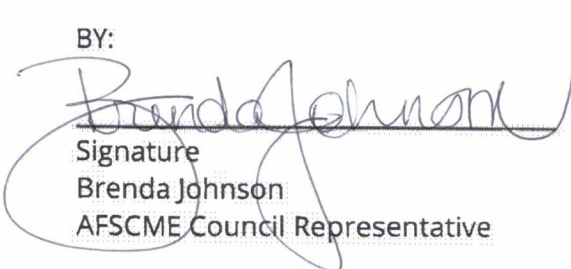 BY:
Brenda Johnson
Signature
Brenda Johnson
AFSCME Council Representative